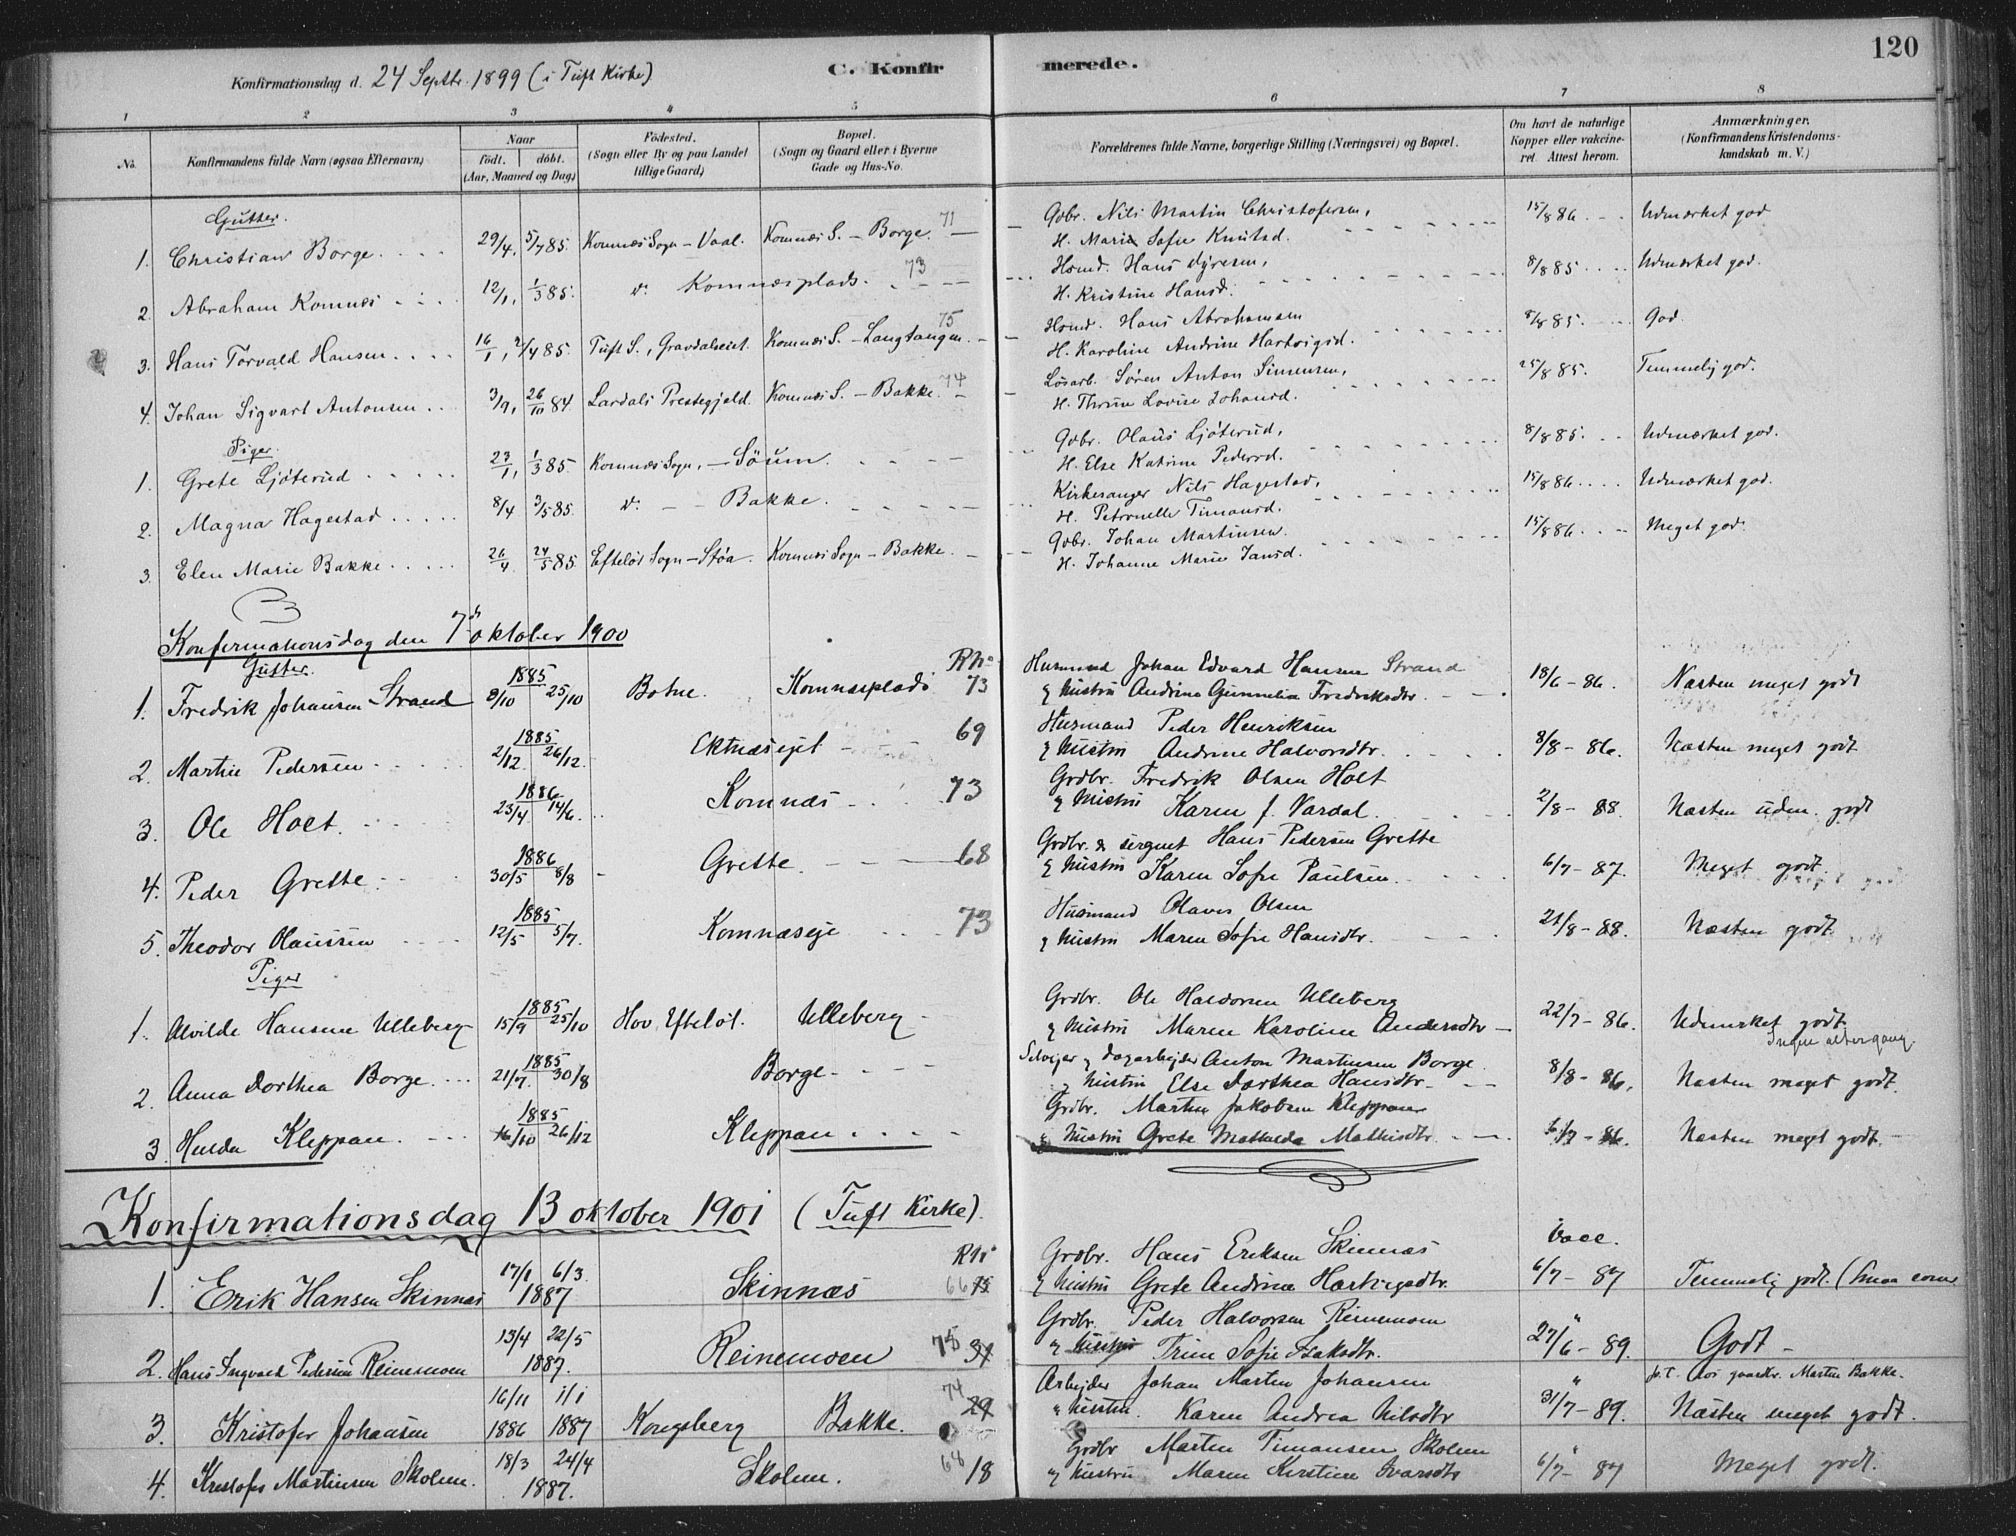 120
Konfirmationsdag d. 24 Septbr. 1899 (i Tuft Kirke)
C. Konfirmerede.
1 2 3 4 5 6 7 8
No. Konfirmandens fulde Navn (ogsaa Efternavn) Naar født. døbt. (Aar, Maaned og Dag) Fødested. (Sogn eller By og paa Landet tillige Gaard) Bopæl. (Sogn og Gaard eller i Byerne Gade og Hus-No. Forældrenes fulde Navne, borgerlige Stilling (Næringsvei) og Bopæl. Om havt de naturlige Kopper eller vakcineret. Attest herom. Anmærkninger. (Konfirmandens Kristendomskundskab m. V.)
Gutter.
1. Christian Borge. 29/4. 5/7 85. Komnæs Sogn - Vaal. Komnæs S. - Borge. 71 Gbr. Nils Martin Christofersen, 15/8 86. Udmærket god
H. Marie Sofie Knutsd.
2. Abraham Komnæs 12/1, 1/3 85. d. Komnæsplads. 73 Hsmd. Hans 8/8 85. Udmærket god.
H. Kristine Hansd.
3. Hans Torvald Hansen 16/1, 2/4 85. Tuft S., Gravdalseiet. Komnæs S. - Langtangen. 75 Hsmd. Hans Abrahamsen 8/8 85. God.
H. Karoline Andrine Hartvigsd.
4. Johan Sigvart Antonsen 3/9, 26/10 84. Lardals Prestegjeld. Komnæs S. - Bakke. 74 Løsarb. Søren Anton Simensen, 25/8 85. Temmelig god.
H. Thrine Lovise Johansd.
Piger.
1. Grete Ljøterud 23/1, 1/3 85 Komnæs Sogn, - Søum. Gbr. Olaus Ljøterud, 8/8 85. Udmærket god.
H. Else Katrine Pedersd.
2. Magna Hagestad 8/4 3/5 85. d. - Bakke. Kirkesanger Nils Hagestad, 15/8 86. Udmærket god.
H. Petronelle Timansd.
3. Elen Marie Bakke 26/4. 24/5 85. Efteløt Sogn - Støa. Komnæs Sogn - Bakke. Gbr. Johan Martinsen. 15/8 86. Meget god.
H. Johanne Marie Jansd.
Konfirmationsdag den 7de oktober 1900
Gutter. R.No
1. Fredrik Johansen Strand 1885 8/10 25/10 Botne. Komnæsplads 73 Husmand Johan Edvard Hansen Strand 18/6 - 86. Næsten meget godt
& hustru Andrine Gunnelia Fredriksdtr.
2. Martin Pedersen 1885 2/12. 26/12. Eknæsejet 69 Husmand Peder Henriksen 8/8 - 86. Næsten meget godt
& hustru Andrine Halvorsdtr.
3. Ole Holt. 1886 23/4 14/6. Komnæs 73 Grdbr. Fredrik Olsen Holt 2/8 - 88. Næsten udm. godt
& hustru Karen J. Vardal.
4. Peder Grette 1886 30/5 8/8 Grette. 68 Grdbr. & sergnet Hans Pedersen Grette 6/7 - 87. Meget godt.
& hustru Karen Sofie Paulsen.
5. Theodor Olaussen 1885 12/5 5/7. Komnæseje 73 Husmand Olaves Olsen 21/8 - 88. Næsten godt
& hustru Maren Sofie Hansdtr.
Piger
1. Alvilde Hansine Ulleberg 1885 15/9 25/10 Hov, Efteløt. Ulleberg Grdbr. Ole Haldorsen Ulleberg 22/7 - 86. Udmerket godt
& hustru Maren Karoline Andersdtr Ingen altergang.
2. Anna Dorthea Borge. 1885 21/7. 30/8 Borge Selvejer & dagarbejder Anton Martinsen Borge 8/8 - 86. Næsten meget godt.
& hustru Else Dorthea Hansdtr.
3. Hulda Kleppan. 1885 16/10 26/12 Kleppan Grdbr. Martin Jakobsen Kleppan 6/7 - 86. Næsten meget godt.
& hustru Grete Mathilde Mathisdtr.
Konfirmationsdag 13 oktober 1901 (Tuft Kirke).
R.No vacc.
1. Erik Hansen Skinnæs 17/1 6/3. 1887 Skinnæs 66 Grdbr. Hans Eriksen Skinnæs 6/7 - 87 Temmelig godt.
& hustru Grete Andrine Hartvigsdtr.
2. Hans Ingvald Pedersen Reinemoen 13/4 22/5 1887. Reinemoen 75 31 Grdbr. Peder Halvorsen Reinemoen 27/6 - 89. Godt -
& hustru Trine Sofie Isaksdtr.
3. Kristofer Johansen 16/11 1886 1/1 1887 Kongsberg Bakke. 74 29 Arbejder Johan Martin Johansen 31/7 - 89. p.t. hos gaardbr. Martin Bakke.
" hustru. Karen Andrea Nilsdtr Næsten meget godt.
4. Kristofer Martinsen Skolem. 18/3 24/4 1887. Skolem. 68 18 Grdbr Martin Timansen Skolem 6/7 - 87 Meget godt.
& hustru Maren Kirstine Ivarsdtr